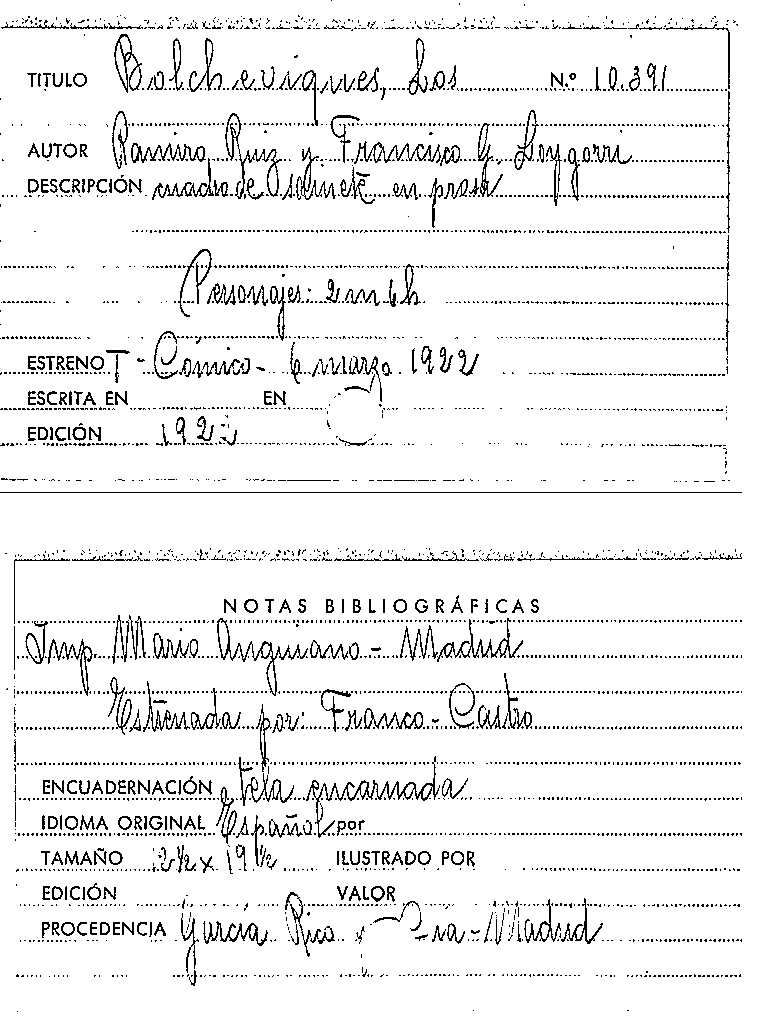 TITULO Bolcheviques, Los N.º 10.391
AUTOR Ramiro Ruiz y Francisco G. Loygorri
DESCRIPCIÓN cuadro de en prosa
Personajes: 2 m 6 h
ESTRENO T - Cómico - 6 marzo 1922
ESCRITA EN EN
EDICIÓN 1922
NOTAS BIBLIOGRÁFICAS
Imp. Mario Anguiano - Madrid
Estrenada por: Franco - Castro
ENCUADERNACIÓN tela encarnada
IDIOMA ORIGINAL Español por
TAMAÑO 12½ x 19½ ILUSTRADO POR
EDICIÓN VALOR
PROCEDENCIA García Rico y Cía - Madrid